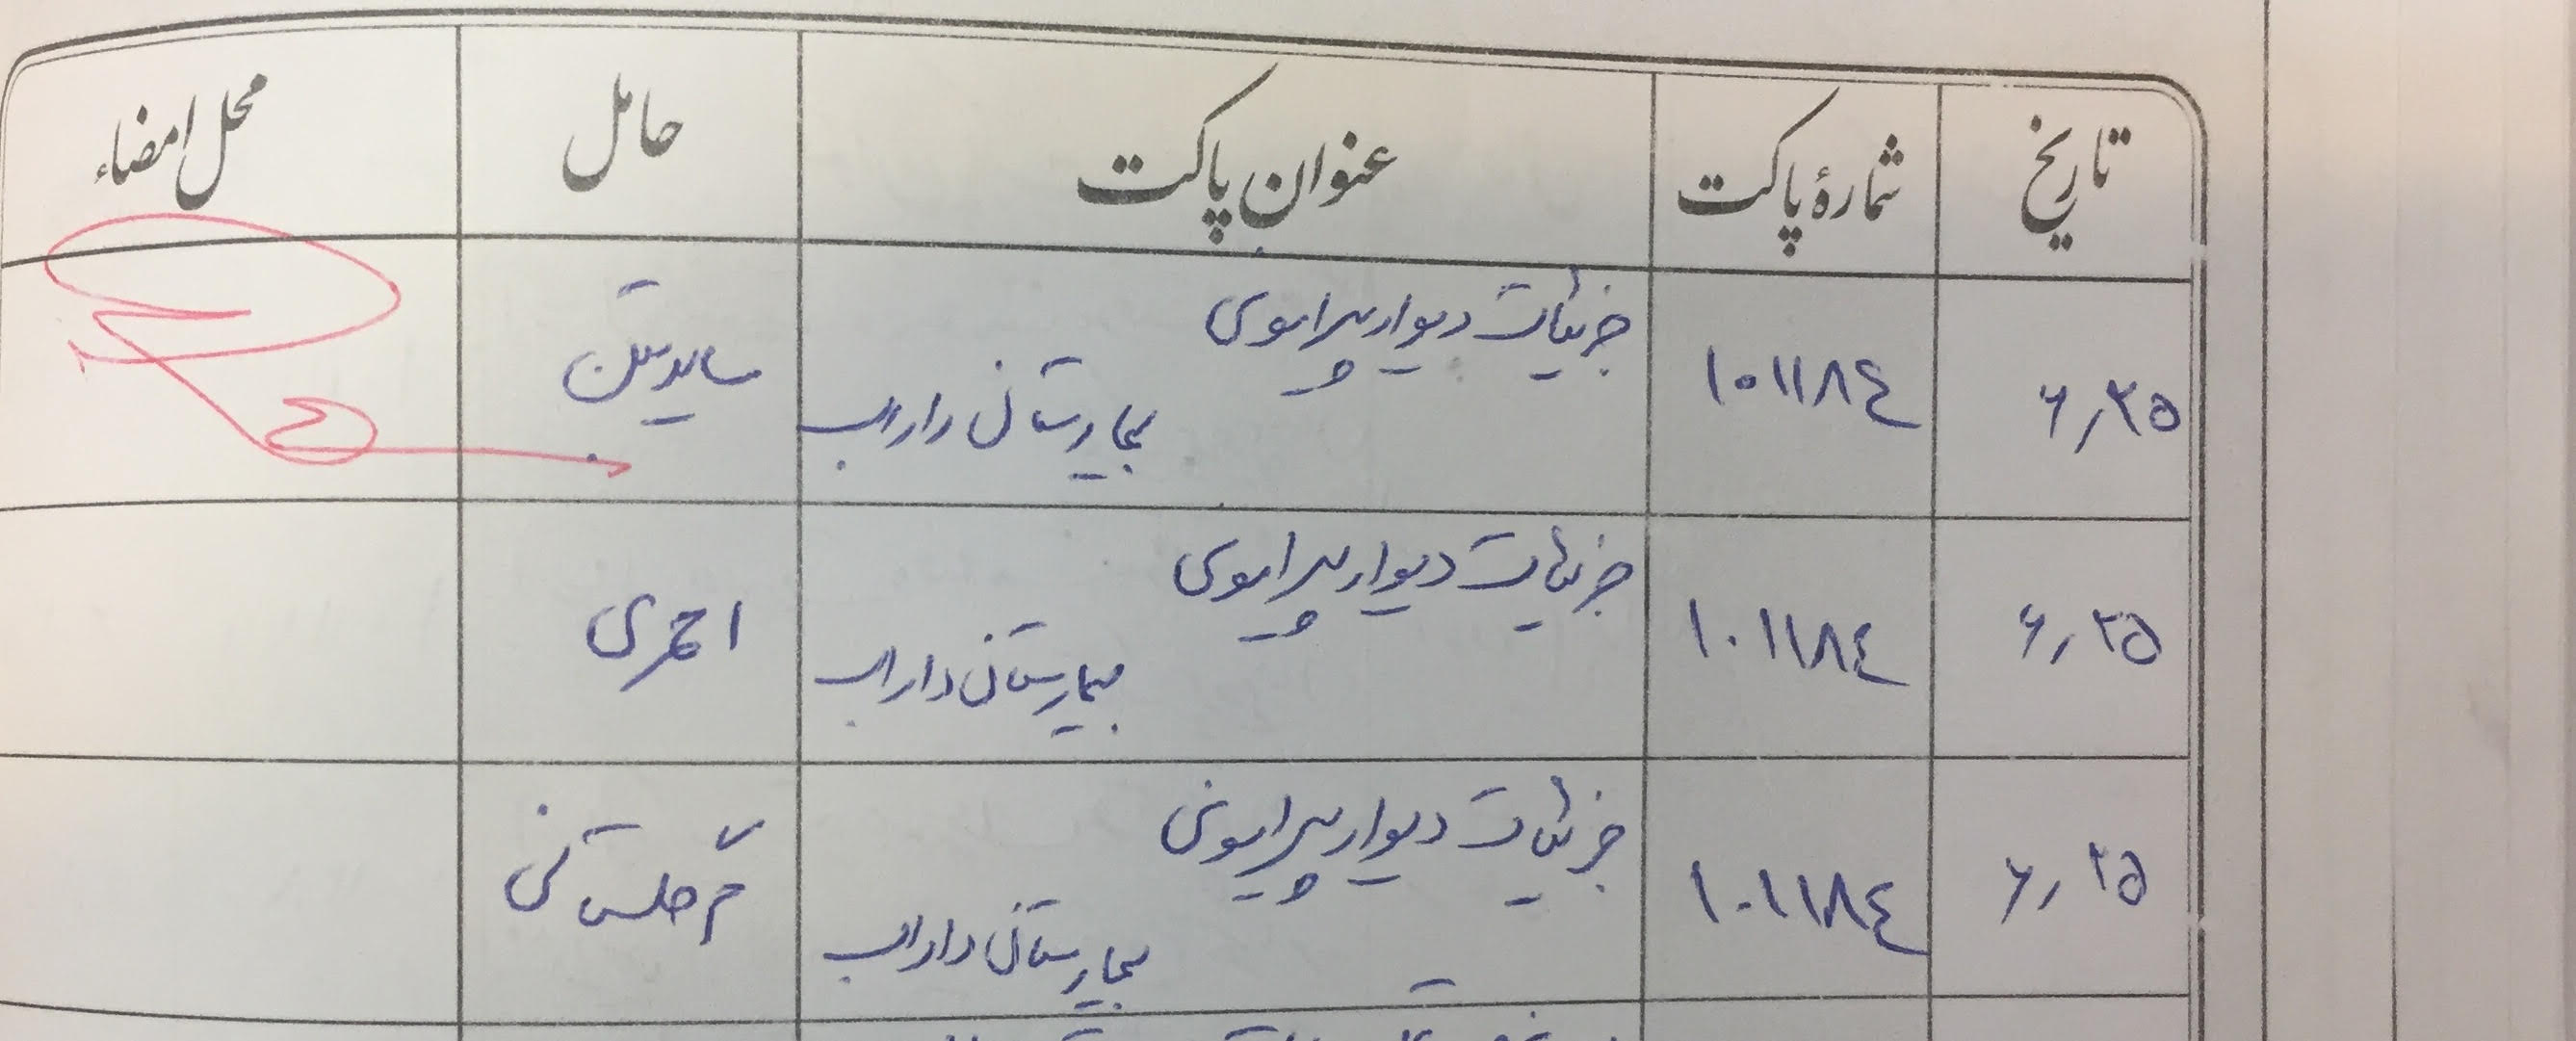 تاریخ شمارهٔ پاکت عنوان پاکت حامل محل امضاء
۶٫۲۵ ۱۰۱۱۸۴ جزئیات دیوار پیرامونی
بیمارستان داراب
۶٫۲۵ ۱۰۱۱۸۴ جزئیات دیوار پیرامونی احمدی
بیمارستان داراب
۶٫۲۵ ۱۰۱۱۸۴ جزئیات دیوار پیرامونی
بیمارستان داراب